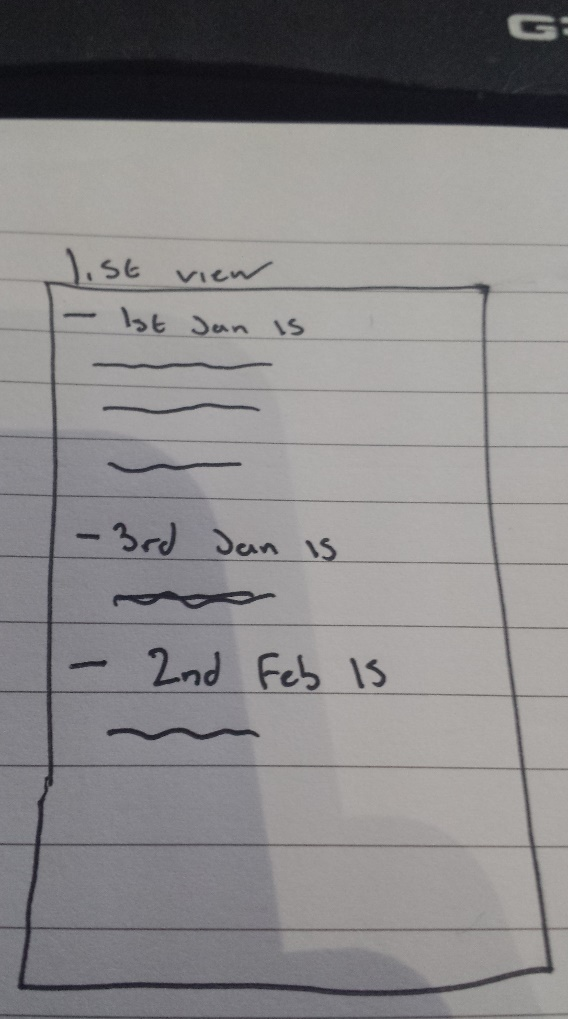 List view
- 1st Jan 15
- 3rd Jan 15
- 2nd Feb 15